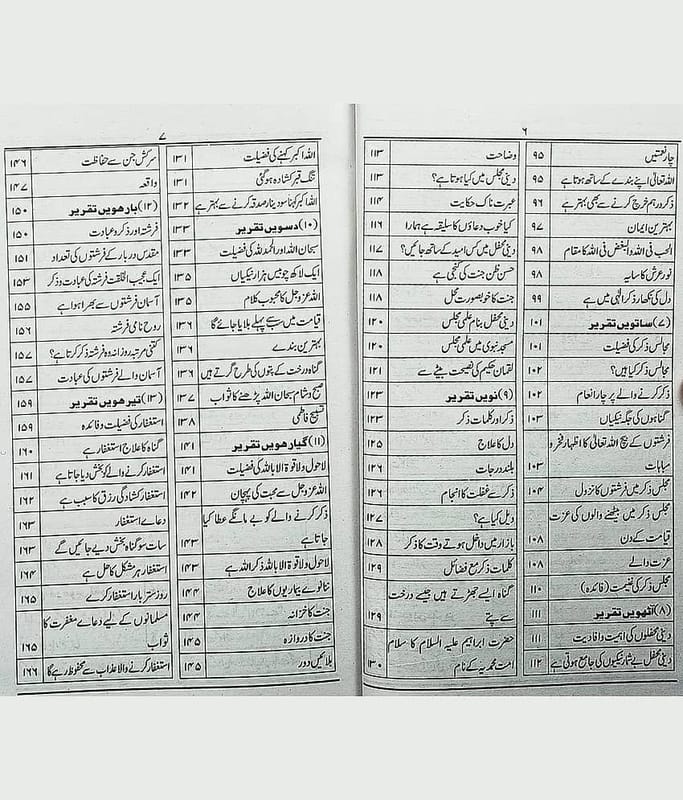 ۶
چار نعمتیں ۹۵
اللہ تعالیٰ اپنے بندے کے ساتھ ہوتا ہے ۹۵
ذکر درہم خرچ کرنے سے بھی بہتر ہے ۹۶
بہترین ایمان ۹۷
الحب فی اللہ والبغض فی اللہ کا مقام ۹۸
نور عرش کا سایہ ۹۸
دل کی نکھار ذکر الٰہی میں ہے ۹۹
(۷) ساتویں تقریر ۱۰۱
مجالس ذکر کی فضیلت ۱۰۱
مجالس ذکر کیا ہیں؟ ۱۰۲
ذکر کرنے والے پر چار انعام ۱۰۲
گناہوں کی جگہ نیکیاں ۱۰۳
فرشتوں کے بیچ اللہ تعالیٰ کا اظہار فخر و
مباہات ۱۰۳
مجلس ذکر میں فرشتوں کا نزول ۱۰۴
مجلس ذکر میں بیٹھنے والوں کی عزت
قیامت کے دن ۱۰۸
عزت والے ۱۰۸
مجلس ذکر کی غنیمت (فائدہ) ۱۱۰
(۸) آٹھویں تقریر ۱۱۱
دینی محفلوں کی اہمیت و افادیت ۱۱۱
دینی محفل بے شمار نیکیوں کی جامع ہوتی ہے ۱۱۲
وضاحت ۱۱۳
دینی مجلس میں کیا ہوتا ہے؟ ۱۱۳
عبرت ناک حکایت ۱۱۴
کیا خوب دعاؤں کا سلیقہ ہے ہمارا ۱۱۶
دینی محفل میں کس امید کے ساتھ جائیں؟ ۱۱۷
حسن ظن جنت کی کنجی ہے ۱۱۸
جنت کا خوبصورت محل ۱۱۸
دینی محفل بنام علمی مجلس ۱۲۰
مسجد نبوی میں علمی مجلس ۱۲۰
لقمان حکیم کی نصیحت بیٹے سے ۱۲۱
(۹) نویں تقریر ۱۲۳
ذکر اور کلمات ذکر ۱۲۳
دل کا علاج ۱۲۵
بلند درجات ۱۲۶
ذکر سے غفلت کا انجام ۱۲۶
ویل کیا ہے؟ ۱۲۷
بازار میں داخل ہوتے وقت کا ذکر ۱۲۸
کلمات ذکر مع فضائل ۱۲۹
گناہ ایسے جھڑتے ہیں جیسے درخت
سے پتے ۱۲۹
حضرت ابراہیم علیہ السلام کا سلام
امت محمدیہ کے نام ۱۳۰
۷
اللہ اکبر کہنے کی فضیلت ۱۳۱
تنگ قبر کشادہ ہوگئی ۱۳۱
اللہ اکبر کہنا سو دینار صدقہ کرنے سے بہتر ہے ۱۳۲
(۱۰) دسویں تقریر ۱۳۳
سبحان اللہ اور الحمد للہ کی فضیلت ۱۳۳
ایک لاکھ چوبیس ہزار نیکیاں ۱۳۵
اللہ عزوجل کا محبوب کلام ۱۳۵
قیامت میں سب سے پہلے بلایا جائے گا ۱۳۶
بہترین بندے ۱۳۶
گناہ درخت کے پتوں کی طرح گرتے ہیں ۱۳۶
صبح و شام سبحان اللہ پڑھنے کا ثواب ۱۳۷
تسبیح فاطمی ۱۳۸
(۱۱) گیارھویں تقریر ۱۴۱
لا حول ولا قوۃ الا باللہ کی فضیلت ۱۴۱
اللہ عزوجل سے محبت کی پہچان ۱۴۲
ذکر کرنے والے کو بے مانگے عطا کیا
جاتا ہے ۱۴۳
لا حول ولا قوۃ الا باللہ ذکر اللہ ہے ۱۴۳
ننانوے بیماریوں کا علاج ۱۴۴
جنت کا خزانہ ۱۴۴
جنت کا دروازہ ۱۴۵
بلائیں دور ۱۴۵
سرکش جن سے حفاظت ۱۴۶
واقعہ ۱۴۷
(۱۲) بارھویں تقریر ۱۵۰
فرشتہ اور ذکر و عبادت ۱۵۰
مقدس دربار کے فرشتوں کی تعداد ۱۵۱
ایک عجیب الخلقت فرشتہ کی عبادت و ذکر ۱۵۳
آسمان فرشتوں سے بھرا ہوا ہے ۱۵۵
روح نامی فرشتہ ۱۵۶
کتنی مرتبہ روزانہ وہ فرشتہ ذکر کرتا ہے؟ ۱۵۷
آسمان والے فرشتوں کی عبادت ۱۵۷
(۱۳) تیرھویں تقریر ۱۵۹
استغفار کی فضیلت و فائدہ ۱۵۹
گناہ کا علاج استغفار ہے ۱۶۰
استغفار کرنے والے کو بخش دیا جاتا ہے ۱۶۱
استغفار کشادگی رزق کا سبب ہے ۱۶۲
دعائے استغفار ۱۶۳
سات سو گناہ بخش دیے جائیں گے ۱۶۳
استغفار ہر مشکل کا حل ہے ۱۶۴
روز ستر بار استغفار کرے ۱۶۵
مسلمانوں کے لیے دعائے مغفرت کا
ثواب ۱۶۵
استغفار کرنے والا عذاب سے محفوظ رہے گا ۱۶۶